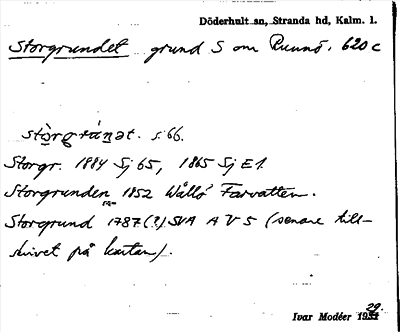 Döderhult sn, Stranda hd, Kalm. l.
Storgrundet grund S om Runnö. 620 c
stò̱rgránət. s. 66.
Storgr. 1884 Sj 65, 1865 Sj E1.
Storgrunden 1852 Wållö Farvatten.
Storgrund 1787(?) SVA A V 5 (senare till-
skrivet på kartan).
Ivar Modéer 1929.